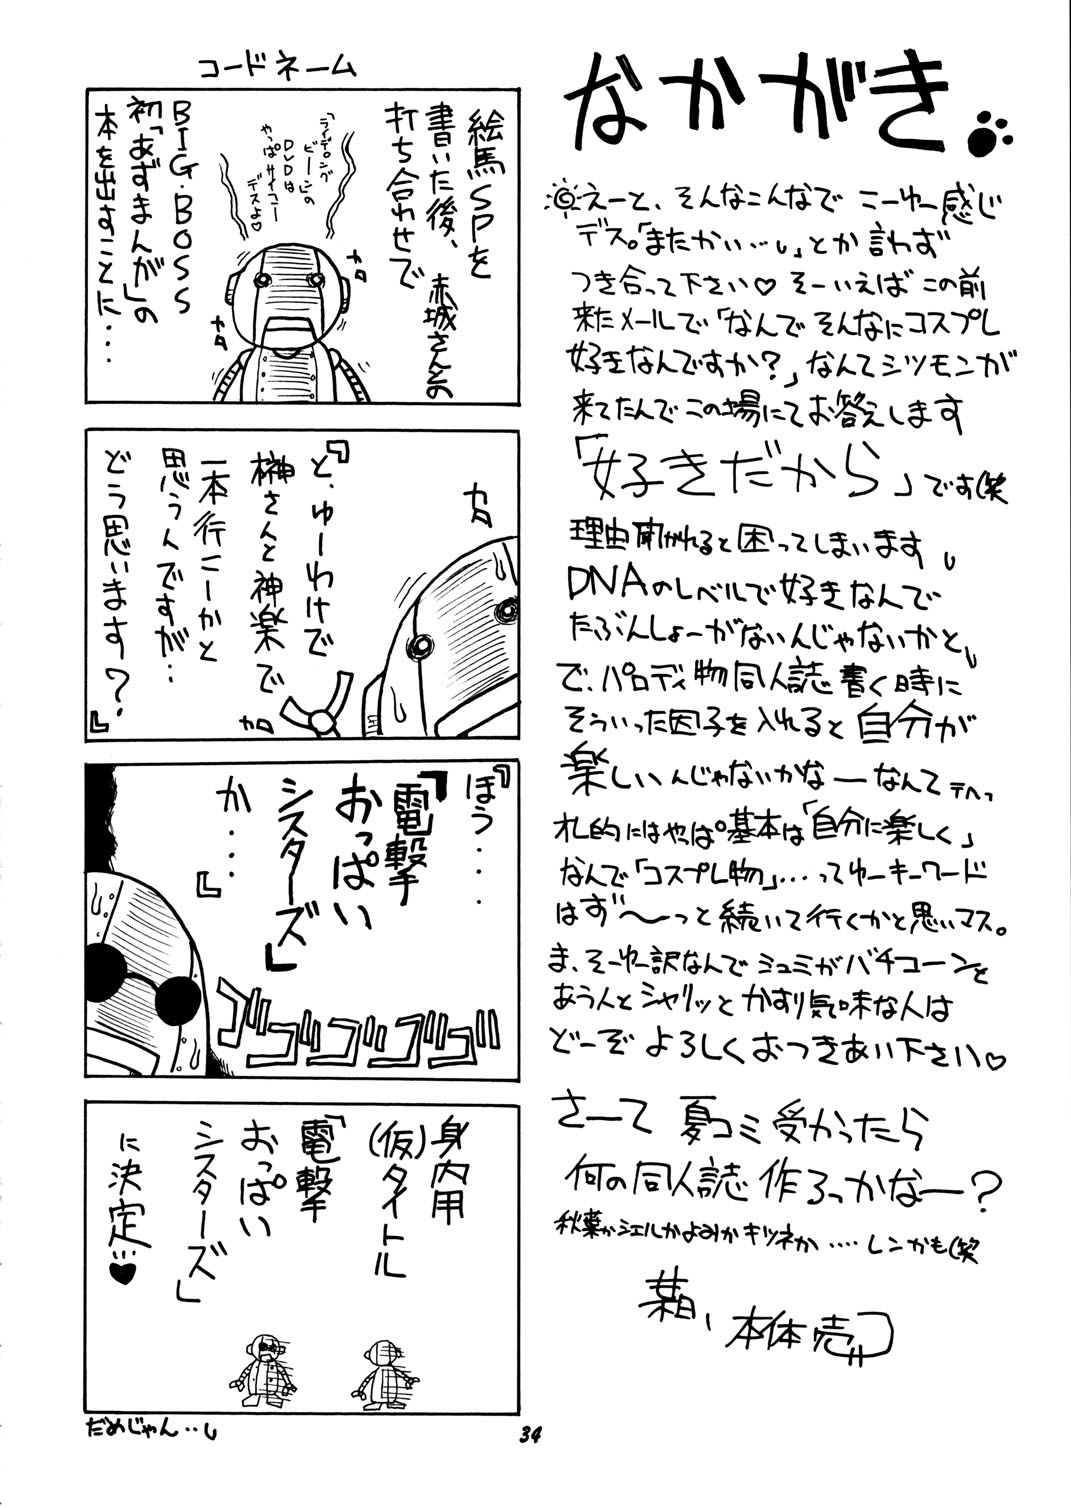 なかがき
えーと、そんなこんなで こーゆー感じ
デス。「またかい…」とか言わず
つき合って下さい♡ そーいえば この前
来たメールで「なんで そんなにコスプレ
好きなんですか?」なんてシツモンが
来てたんで この場にてお答えします
「好きだから」です(笑
理由聞かれると困ってしまいます
DNAのレベルで好きなんで
たぶんしょーがないんじゃないかと
で、パロディ物同人誌 書く時に
そういった因子を入れると自分が
楽しいんじゃないかなーなんて
札的にはやっぱ基本は「自分に楽しく」
なんで「コスプレ物」…ってゆーキーワード
はず〜っと続いて行くかと思いマス。
ま、そーゆー訳なんで シュミがバチコーンと
あう人とシャリッとかすり気味な人は
どーぞ よろしくおつきあい下さい♡
さーて 夏コミ受かったら
何の同人誌 作ろっかなー?
秋葉かシエルかよみかキツネか‥‥レンかも(笑
本体売
コードネーム
絵馬SPを
書いた後、赤城さんとの
打ち合わせで
「ライデング
ビーン」の
DVDは
やっぱサイコー
デスよ♡
カタ
カタ
BIG・BOSS
初「あずまんが」の
本を出すことに‥‥
『と、ゆーわけで
榊さんと神楽で
一本行こーかと
思うんですが‥
どう思います?』
カタ
カタ
『ほう‥‥
「電撃
おっぱい
シスターズ」
か‥‥』
ゴゴゴゴゴ
身内用
(仮)タイトル
「電撃
おっぱい
シスターズ」
に決定…♥
だめじゃん‥
34